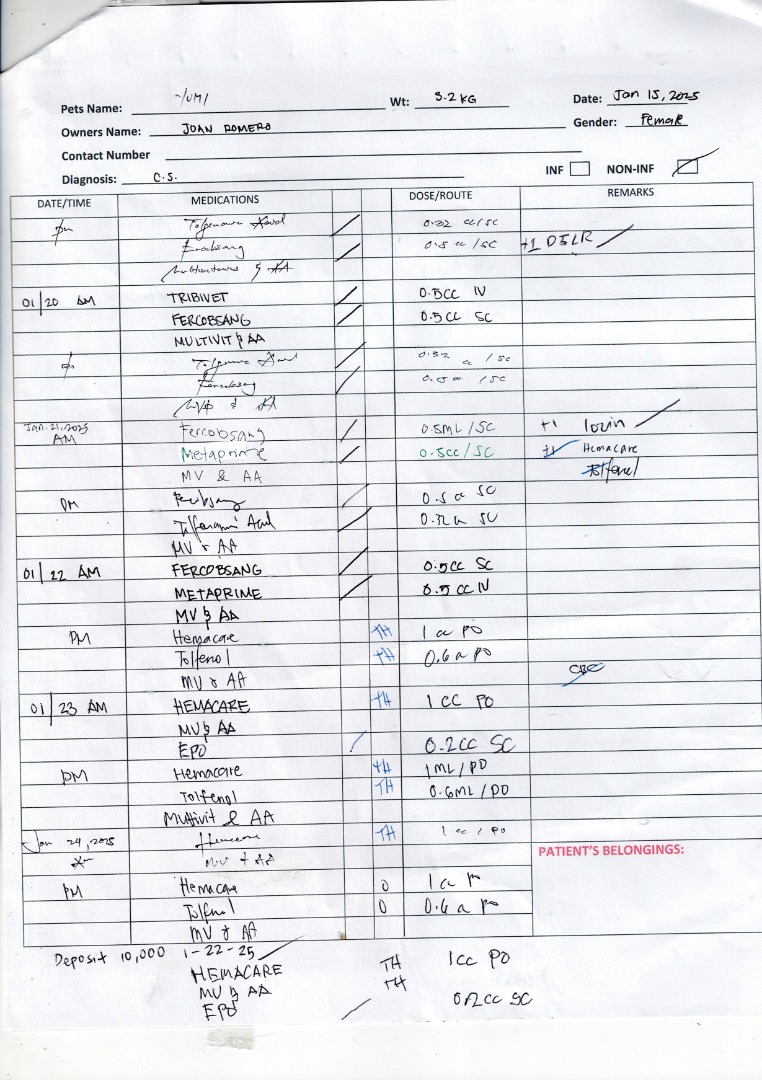 Pets Name: YUMI Wt: 3.2 KG Date: Jan 15, 2025
Owners Name: JOAN ROMERO Gender: Female
Contact Number
Diagnosis: C.S. INF NON-INF
DATE/TIME MEDICATIONS DOSE/ROUTE REMARKS
pm 0.32 cc/SC
0.5 cc/SC +1 D5LR
& AA
01/20 AM TRIBIVET 0.5cc IV
FERCOBSANG 0.5cc SC
MULTIVIT & AA
0.32 cc / SC
Fercobsang / SC
& AA
Jan. 21, 2025 Fercobsang 0.5ML/SC +1
AM Metaprime 0.5cc/SC +1 Hemacare
MV & AA Tolfenol
PM 0.5 cc SC
0.32 cc SC
MV & AA
01/22 AM FERCOBSANG 0.5cc SC
METAPRIME 0.5 cc IV
MV & AA
PM Hemacare TH 1 cc PO
Tolfenol TH 0.6 cc PO
MV & AA CBC
01/23 AM HEMACARE TH 1 CC PO
MV & AA
EPO 0.2CC SC
PM Hemacare TH 1ML/PO
Tolfenol TH 0.6ML/PO
Multivit & AA
Jan 24, 2025 TH 1 cc / PO
MV + AA
PATIENT'S BELONGINGS:
PM Hemacare O 1 cc PO
Tolfenol O 0.6 cc PO
MV & AA
Deposit 10,000 1-22-25
HEMACARE TH 1cc PO
MV & AA TH
EPO 0.2cc SC